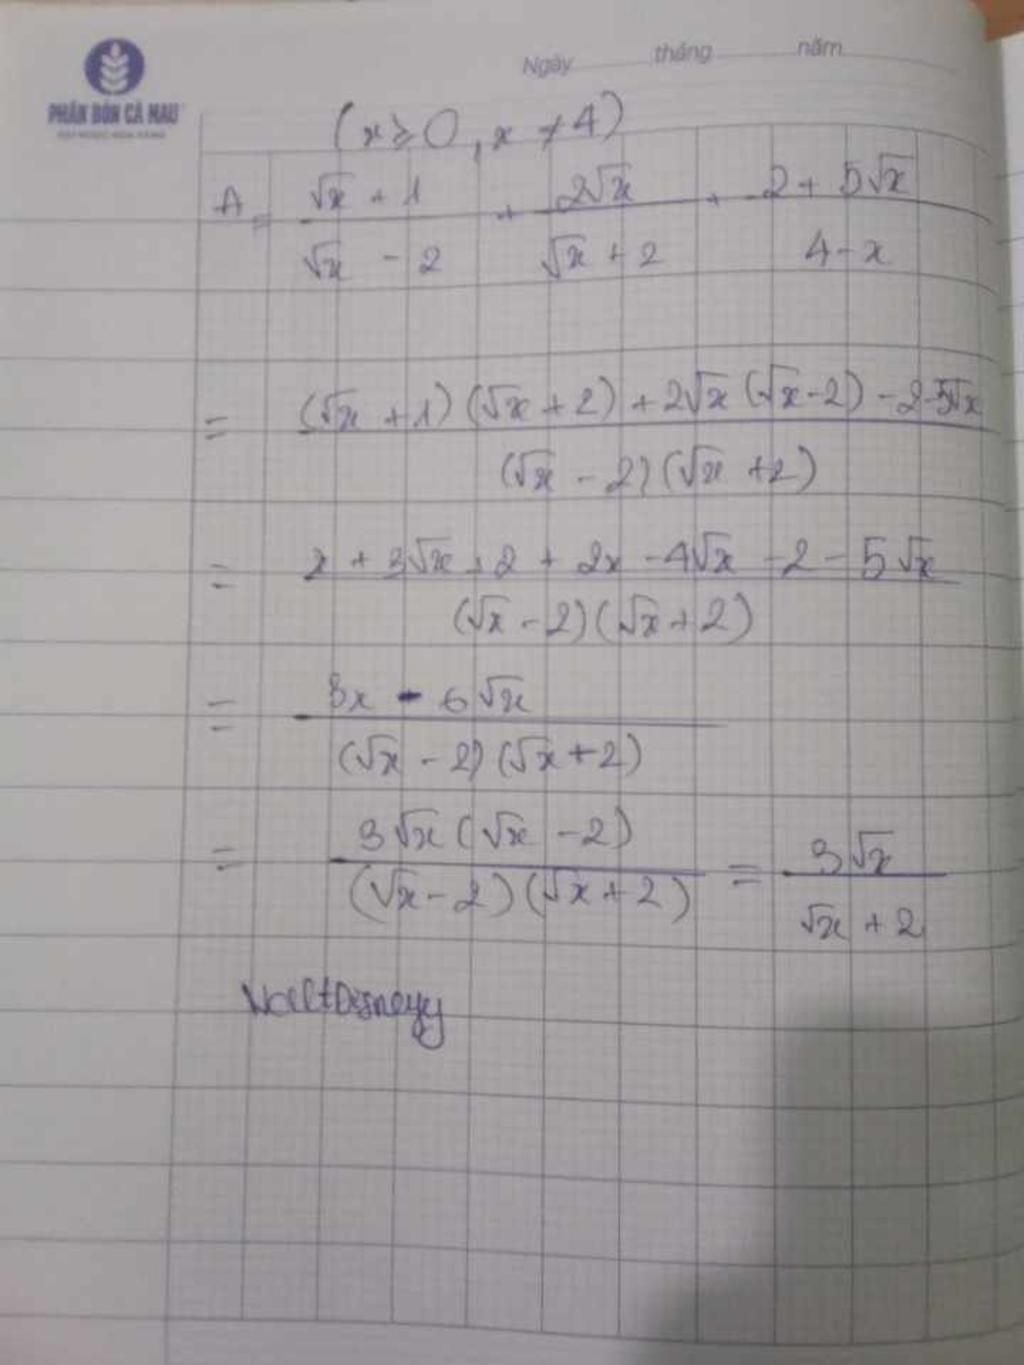 PHÂN BÓN CÀ MAU
Ngày tháng năm
(x ≥ 0, x ≠ 4)
A = (√x + 1)/(√x - 2) + (2√x)/(√x + 2) + (2 + 5√x)/(4 - x)
= ((√x + 1)(√x + 2) + 2√x(√x - 2) - 2 - 5√x)/((√x - 2)(√x + 2))
= (x + 3√x + 2 + 2x - 4√x - 2 - 5√x)/((√x - 2)(√x + 2))
= (3x - 6√x)/((√x - 2)(√x + 2))
= (3√x(√x - 2))/((√x - 2)(√x + 2)) = (3√x)/(√x + 2)
WaltDisneyy